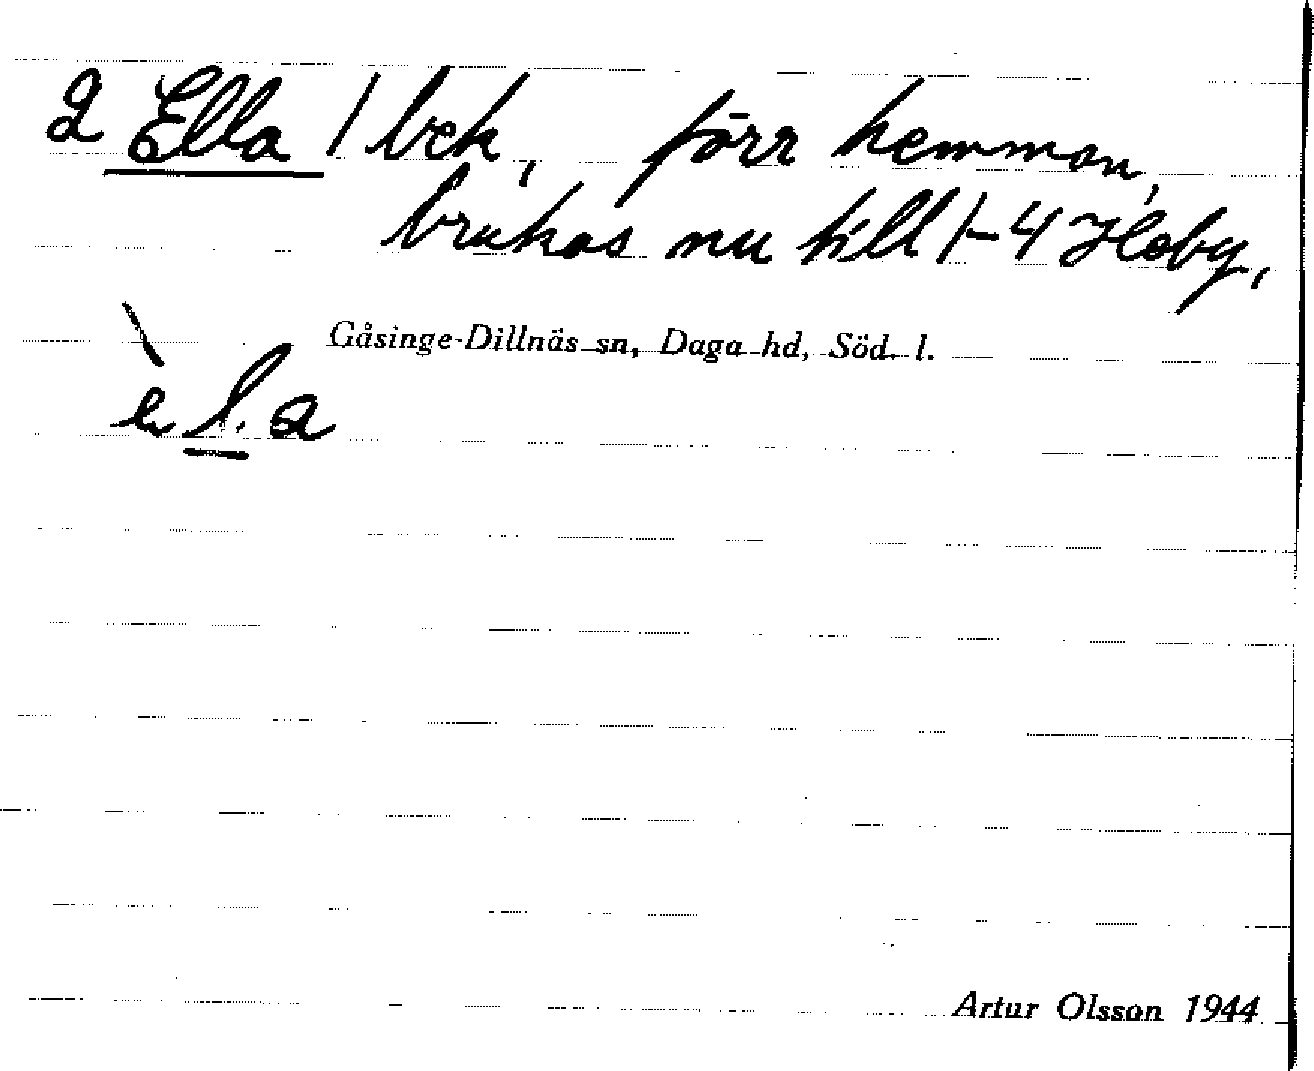 2 Ella / bek, förr hemman,
brukas nu till 1-4 Heby,
Gåsinge-Dillnäs sn, Daga hd, Söd. l.
è l. a
Artur Olsson 1944